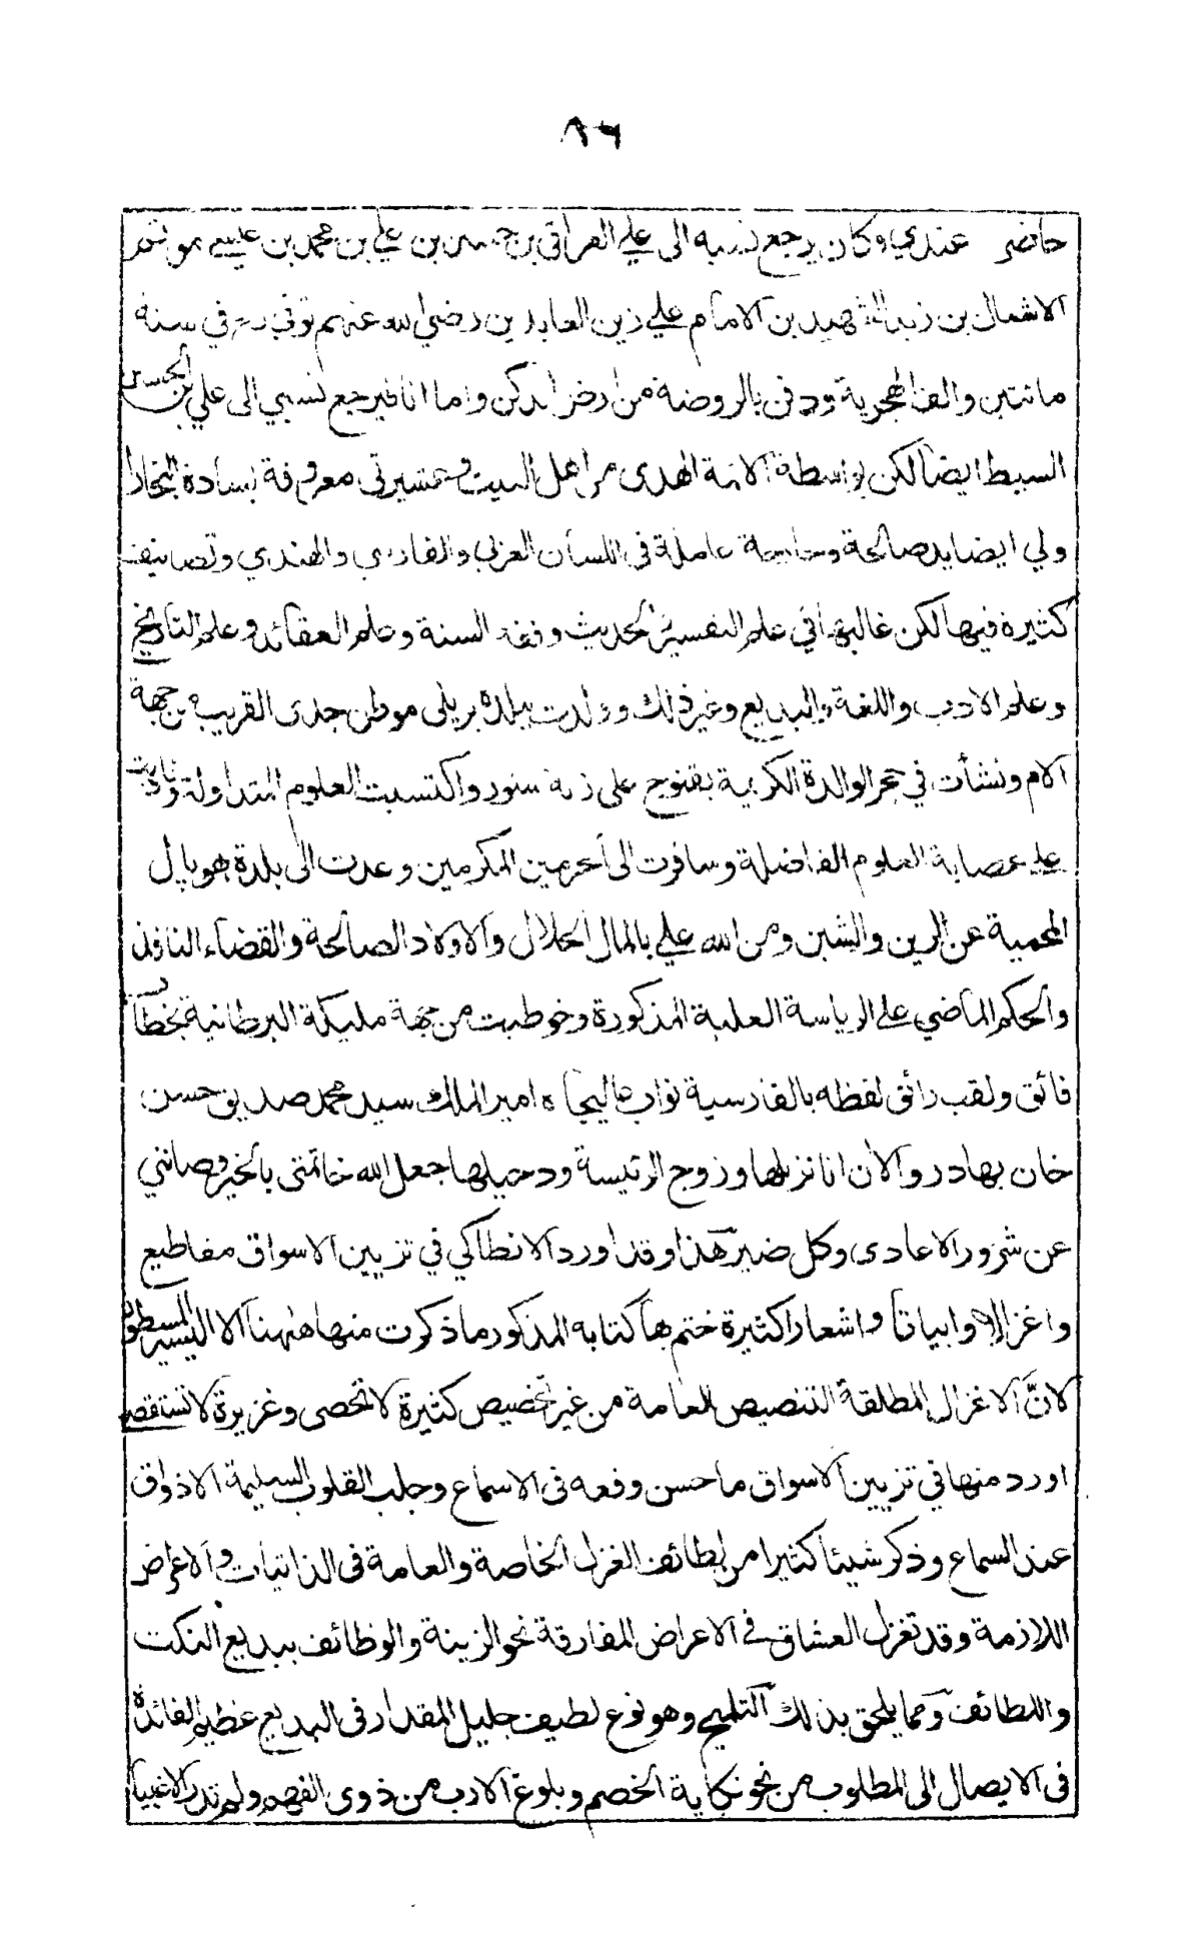 ٨٦
حاضر عندي وكان يرجع نسبه الى علي العراقي بن حسين بن علي بن محمد بن عيسى موتم
الاشبال بن زيد الشهيد بن الامام علي زين العابدين رضي الله عنهم توفي رح في سنة
مائتين والف الهجرية ودفن بالروضة من ارض الدكن واما انا فيرجع نسبي الى علي بن الحسين
السبط ايضا لكن بواسطة الائمة الهدى من اهل البيت وعشيرتي معروفة بسادة البخارا
ولي ايضا يد صالحة وجارحة عاملة في اللسان العربي والفارسي والهندي وتصانيف
كثيرة فيها لكن غالبها في علم التفسير والحديث وفقه السنة وعلم العقائد وعلم التاريخ
وعلم الادب واللغة والبديع وغير ذلك وولدت ببلدة بريلي موطن جدي القريب من جهة
الام ونشأت في حجر الوالدة الكريمة بقنوج على زنة سنور واكتسبت العلوم المتداولة
على عصابة العلوم الفاضلة وسافرت الى الحرمين المكرمين وعدت الى بلدة بهوپال
المحمية عن الرين والشين ومن الله علي بالمال الحلال والاولاد الصالحة والقضاء النافذ
والحكم الماضي على الرياسة العلية المذكورة وخوطبت من جهة مليكة البرطانية بخطاب
فائق ولقب رائق لفظه بالفارسية نواب عاليجاه امير الملك سيد محمد صديق حسن
خان بهادر والآن انا نزيلها وزوج الرئيسة ودخيلها جعل الله خاتمتي بالخير وصانني
عن شرور الاعادى وكل ضير هذا وقد اورد الانطاكي في تزيين الاسواق مقاطيع
واغزالا وابياتا واشعارا كثيرة ختم بها كتابه المذكور ما ذكرت منها ههنا الا اليسير المسطور
لانّ الاغزال المطلقة التنصيص للعامة من غير تخصيص كثيرة لا تحصى وغزيرة لا تستقصى
اورد منها في تزيين الاسواق ما حسن وقعه فى الاسماع وجلب القلوب السليمة الاذواق
عند السماع وذكر شيئا كثيرا من لطائف الغزل الخاصة والعامة فى الذاتيات والاعراض
اللازمة وقد تغزل العشاق في الاعراض المفارقة نحو الزينة والوظائف ببديع النكت
واللطائف ومما يلحق بذلك التلميح وهو نوع لطيف جليل المقدار فى البديع عظيم الفائدة
فى الايصال الى المطلوب من نحو نكاية الخصم وبلوغ الادب من ذوى الفهم ولم تدر الاغبياء